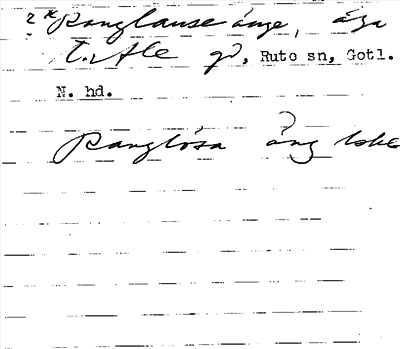 ? *Ranglause änge, äga
t. Ale gd, Ruto sn, Gotl.
N. hd.
Ranglösa äng